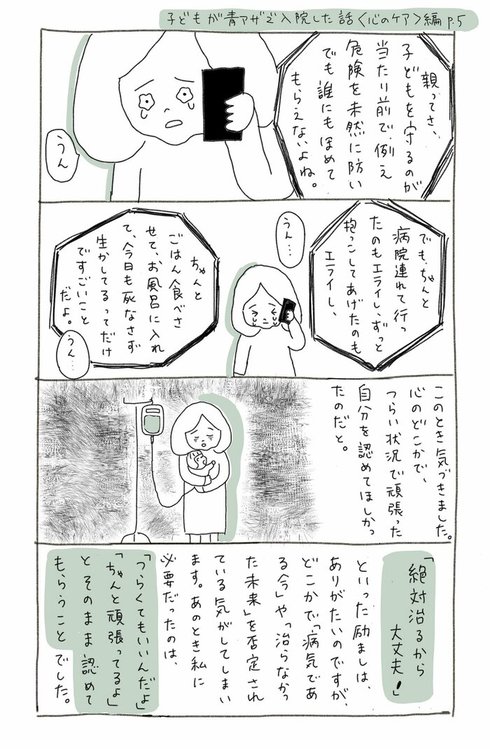 子どもが青アザで入院した話〈心のケア〉編 P.5
親ってさ、
子どもを守るのが
当たり前で、例え
危険を未然に防い
でも誰にもほめて
もらえないよね。
うん
でも、ちゃんと
病院連れて行っ
たのもエライし、ずっと
抱っこしてあげたのも
エライし、
うん…
ちゃんと
ごはん食べさ
せて、お風呂に入れ
て、今日も死なさず
生かしてるってだけ
ですごいこと
だよ。
うん…
このとき気づきました。
心のどこかで、
つらい状況で頑張った
自分を認めてほしかっ
たのだと。
「絶対治るから
大丈夫！」
といった励ましは、
ありがたいのですが、
どこかで「病気であ
る今」や「治らなかっ
た未来」を否定され
ている気がしてしまい
ます。あのとき私に
必要だったのは、
「つらくてもいいんだよ」
「ちゃんと頑張ってるよ」
とそのまま認めて
もらうことでした。